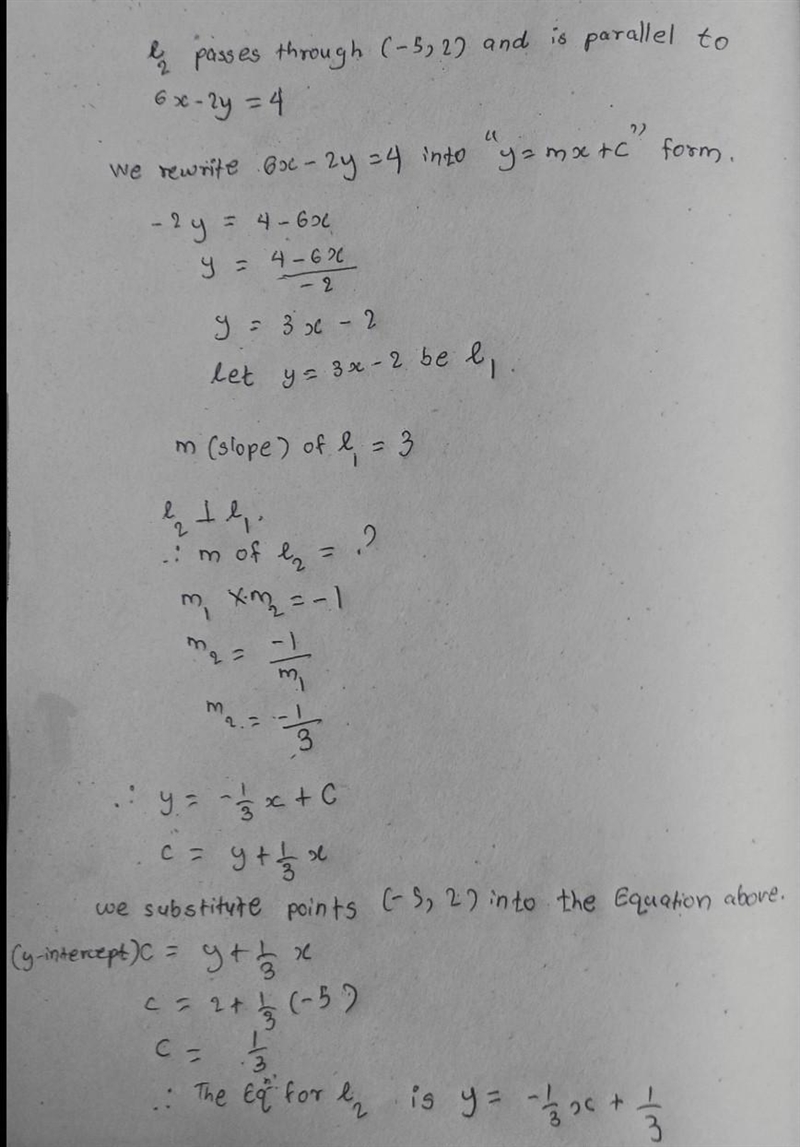 l₂ passes through (-5, 2) and is parallel to
6x - 2y = 4
we rewrite 6x - 2y = 4 into "y = mx + c" form.
-2y = 4 - 6x
y = (4 - 6x)/-2
y = 3x - 2
Let y = 3x - 2 be l₁.
m (slope) of l₁ = 3
l₂ ⊥ l₁.
∴ m of l₂ = ?
m₁ × m₂ = -1
m₂ = -1/m₁
m₂ = -1/3
∴ y = -1/3 x + C
c = y + 1/3 x
we substitute points (-5, 2) into the Equation above.
(y-intercept) C = y + 1/3 x
c = 2 + 1/3 (-5)
c = 1/3
∴ The Eqⁿ for l₂ is y = -1/3 x + 1/3